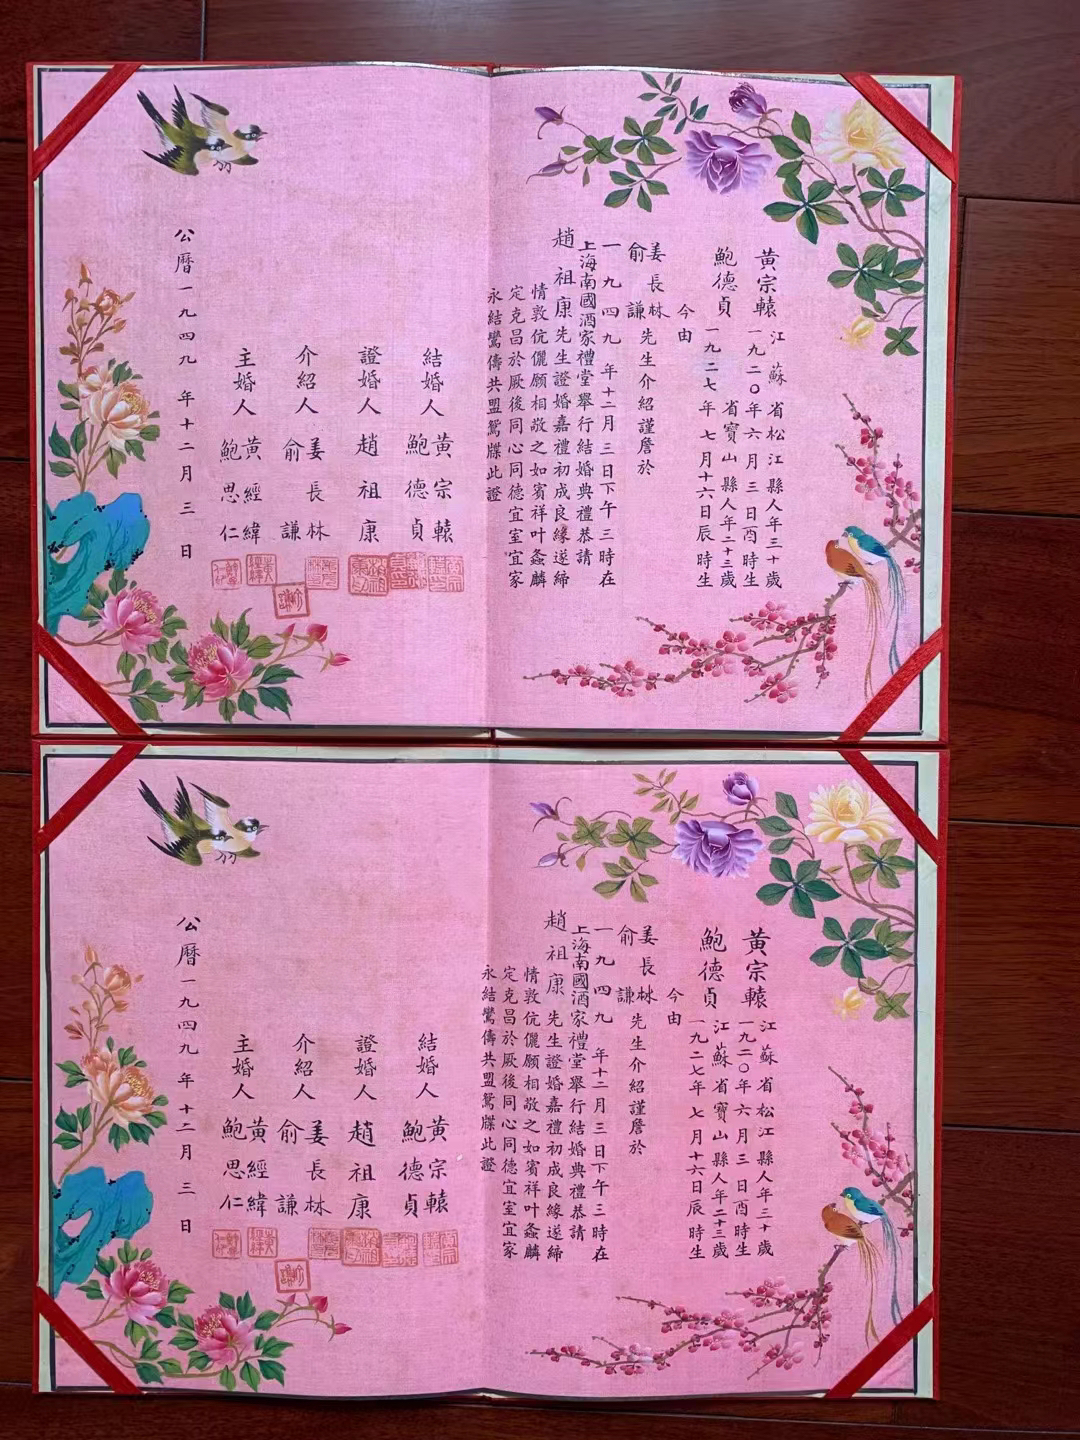 黃宗轅 江蘇省松江縣人年三十歲
一九二〇年六月三日酉時生
鮑德貞 省寶山縣人年二十三歲
一九二七年七月十六日辰時生
今由
姜長林
俞謙 先生介紹謹詹於
一九四九年十二月三日下午三時在
上海南國酒家禮堂舉行結婚典禮恭請
趙祖康先生證婚嘉禮初成良緣遂締
情敦伉儷願相敬之如賓祥叶螽麟
定克昌於厥後同心同德宜室宜家
永結鸞儔共盟鴛牒此證
結婚人 黃宗轅 鮑德貞
證婚人 趙祖康
介紹人 姜長林 俞謙
主婚人 黃經緯 鮑思仁
公曆一九四九年十二月三日
黃宗轅 江蘇省松江縣人年三十歲
一九二〇年六月三日酉時生
鮑德貞 江蘇省寶山縣人年二十三歲
一九二七年七月十六日辰時生
今由
姜長林
俞謙 先生介紹謹詹於
一九四九年十二月三日下午三時在
上海南國酒家禮堂舉行結婚典禮恭請
趙祖康先生證婚嘉禮初成良緣遂締
情敦伉儷願相敬之如賓祥叶螽麟
定克昌於厥後同心同德宜室宜家
永結鸞儔共盟鴛牒此證
結婚人 黃宗轅 鮑德貞
證婚人 趙祖康
介紹人 姜長林 俞謙
主婚人 黃經緯 鮑思仁
公曆一九四九年十二月三日